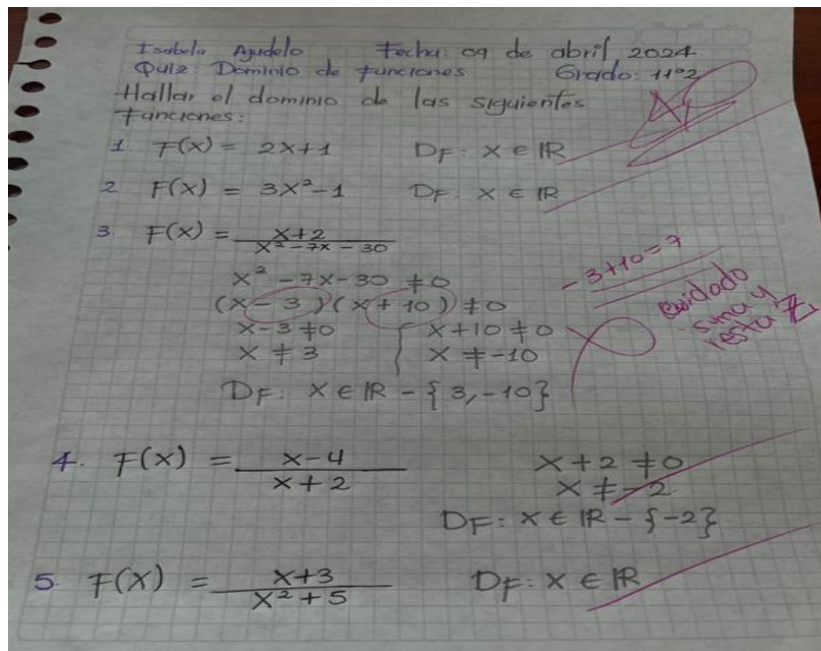 Isabela Agudelo Fecha: 09 de abril 2024
Quiz: Dominio de funciones Grado: 11°2
Hallar el dominio de las siguientes
funciones:
1 F(x) = 2x+1 DF: x ∈ IR
2 F(x) = 3x²-1 DF: x ∈ IR
3. F(x) = x+2
x²-7x-30
x²-7x-30 ≠0
-3+10=7
(x-3)(x+10) ≠0
x-3≠0 x+10≠0
x ≠ 3 x ≠-10
Cuidado
suma y
resta Z
DF: x ∈ IR - {3,-10}
4. F(x) = x-4
x+2
x+2 ≠0
x ≠-2
DF: x ∈ IR - {-2}
5. F(x) = x+3
x²+5
DF: x ∈ IR